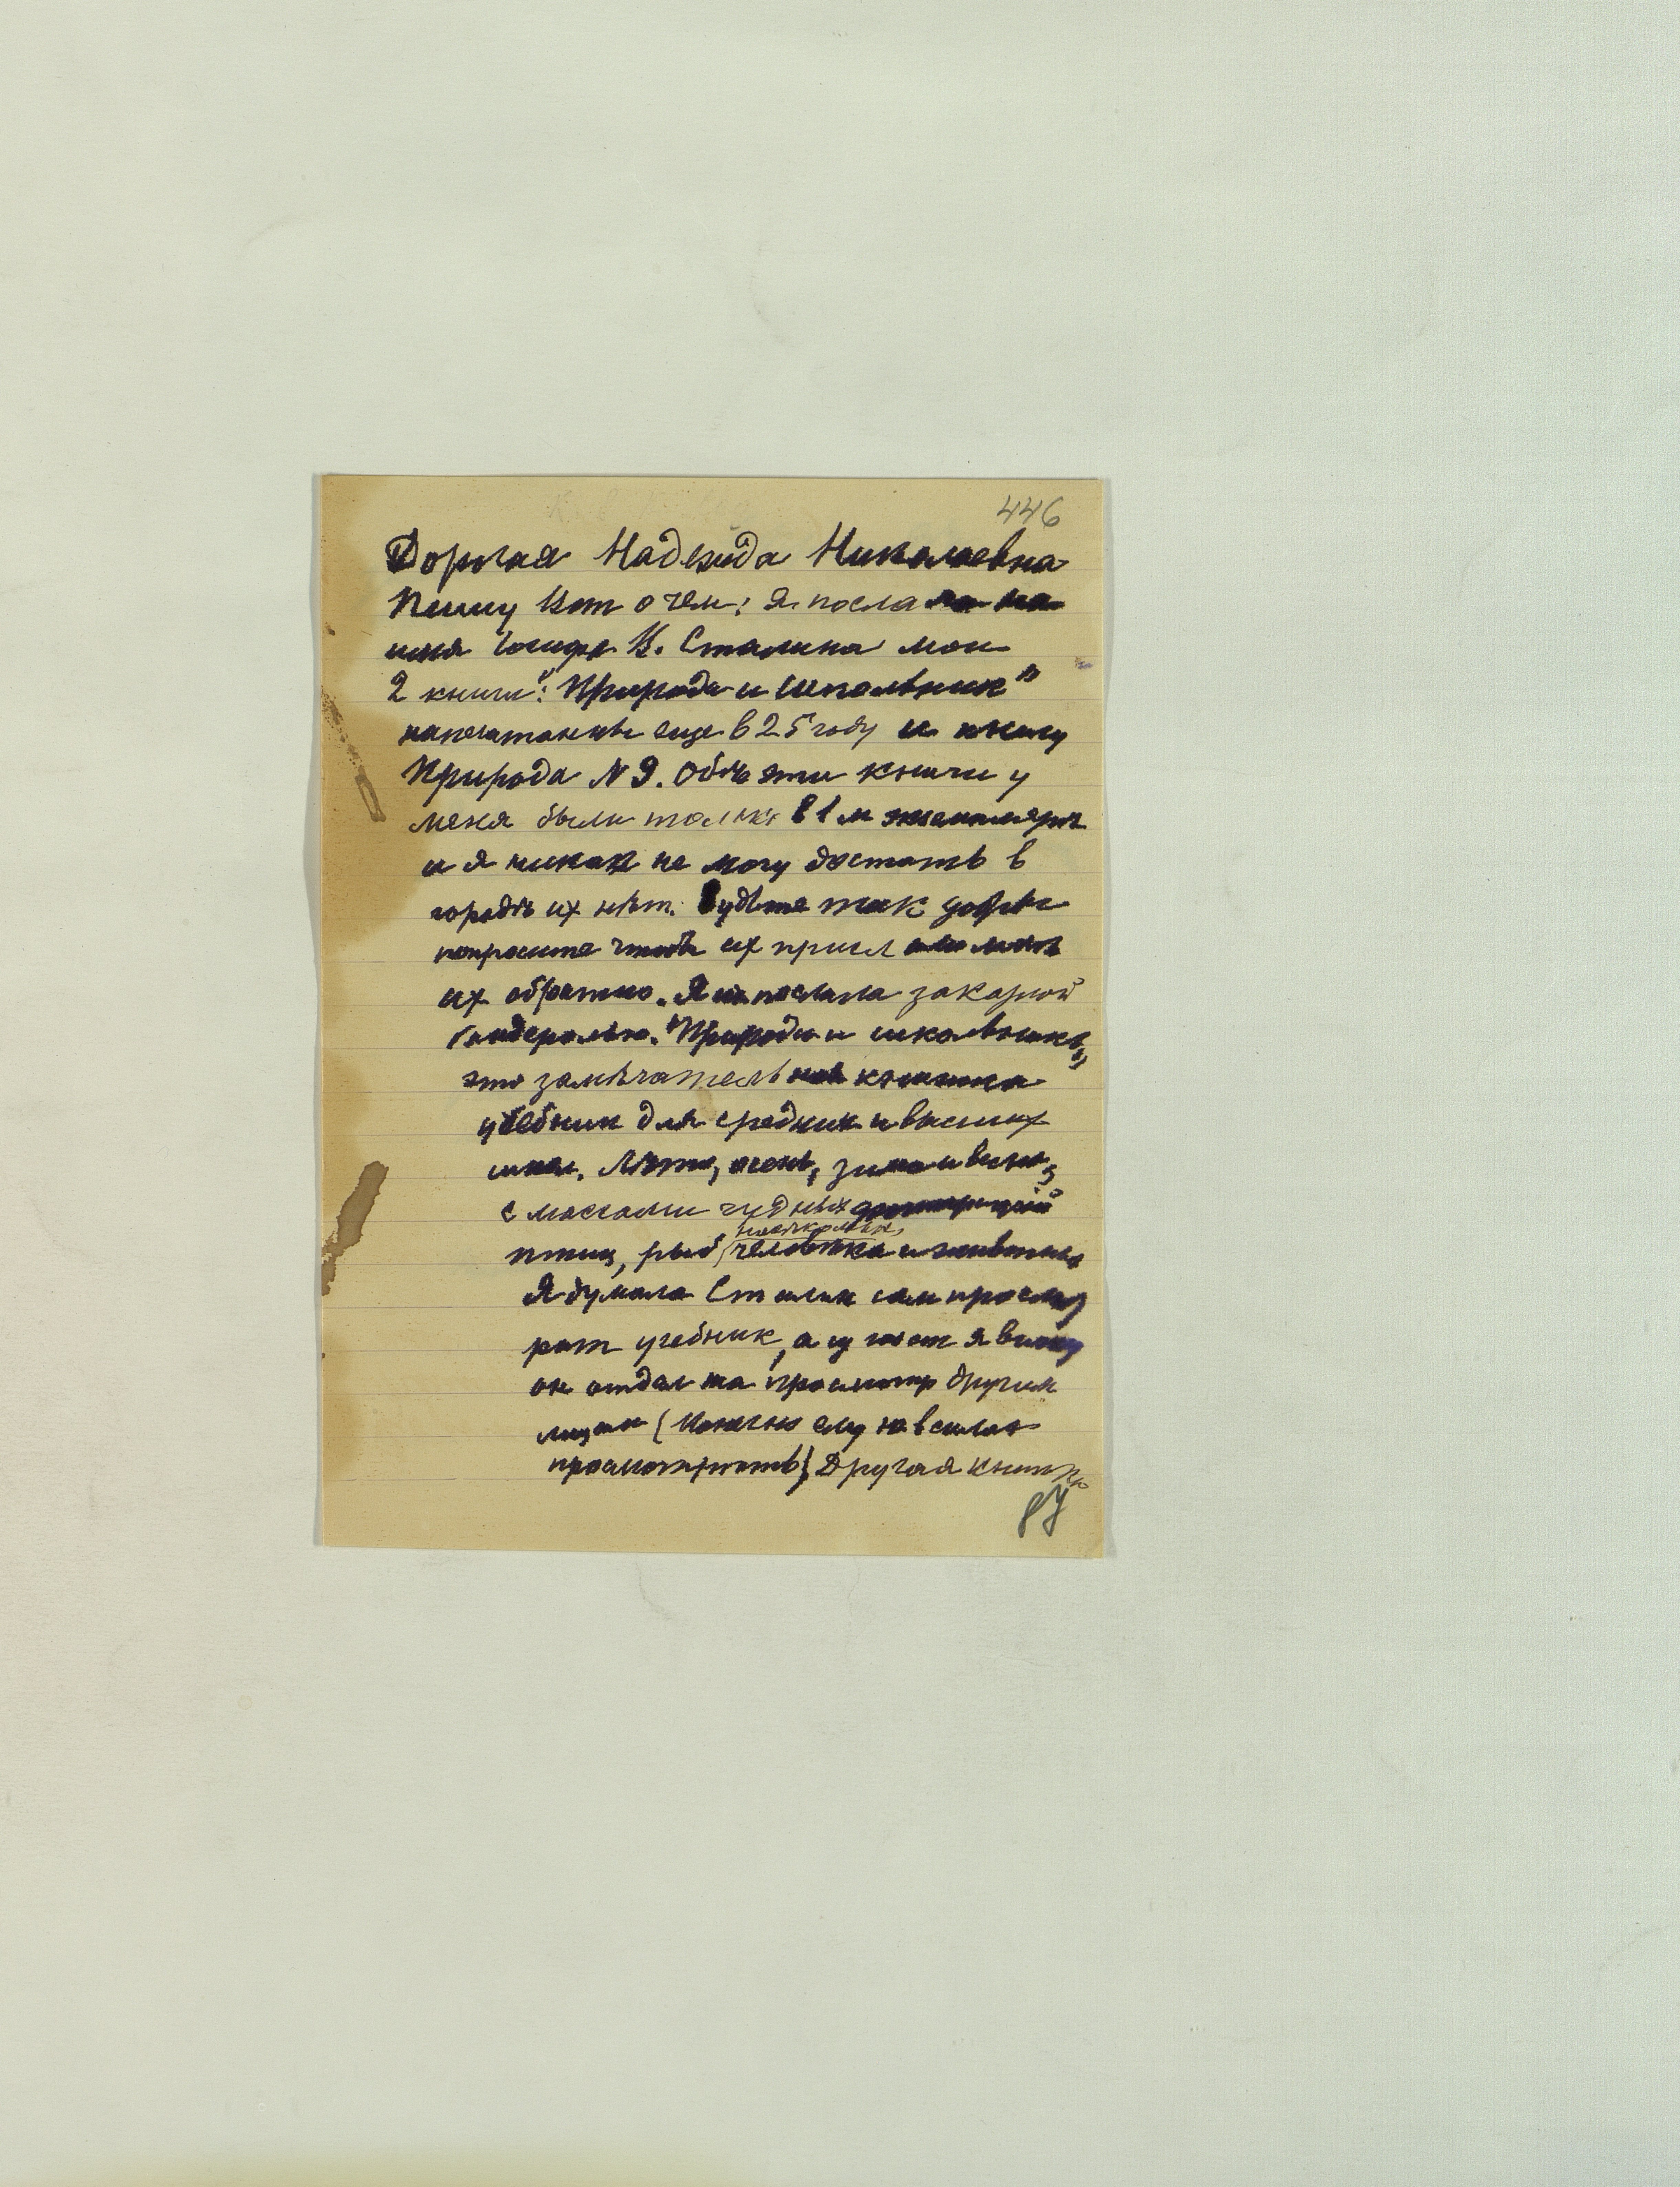 446
Дорогая Надежда Николаевна
Пишу Вот о чем: Я послала на
имя Иосифа В. Сталина мои
2 книги: "Природа и школьник"
напечатанные еще в 25 году и книгу
Природа N 9. Обѣ эти книги у
меня были только в 1 м экземплярѣ
и я никак не могу достать в
городѣ их нѣт. Будьте так добры
попросите чтобы их прислали мнѣ
их обратно. Я их послала заказной
бандеролью. "Природа и школьник"
это замѣчательная книжка
учебник для средних и высших
школ. Лѣто, осень, зима и весна,
с массами чудных
птиц, рыб, насѣкомых, человѣка и животных
Я думала Сталин сам просмот
рит учебник, а
он отдал на просмотр другим
лицам (Конечно ему не в силах
просмотрѣть) Другая книжка
87